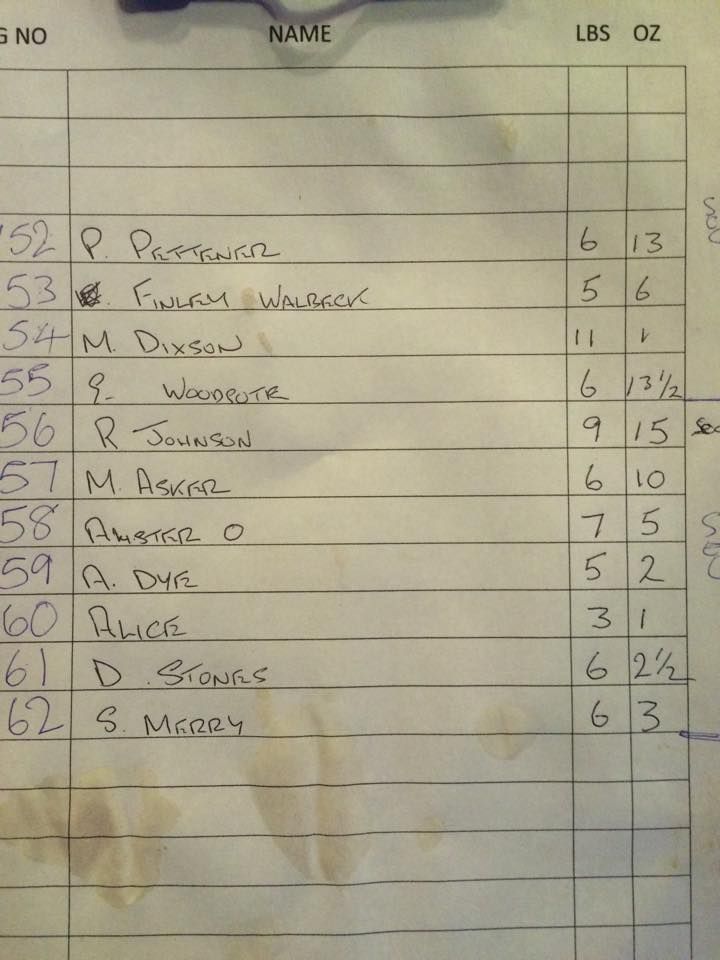 G NO NAME LBS OZ
52 P. PETTENER 6 13
53 FINLEY WALBECK 5 6
54 M. DIXSON 11 1
55 6 13½
56 R JOHNSON 9 15
57 M. ASKER 6 10
58 O 7 5
59 A. DYE 5 2
60 ALICE 3 1
61 D. STONES 6 2½
62 S. MERRY 6 3